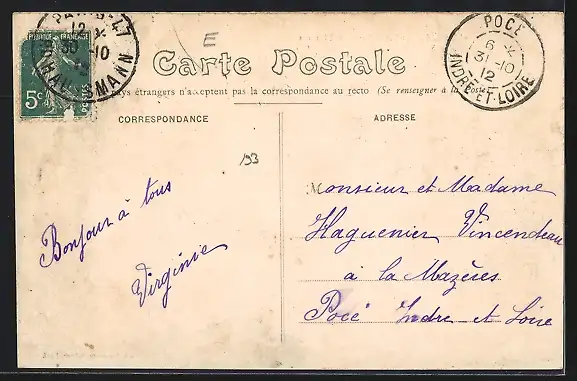 PARIS-47
12
30 -10
HAUSSMANN
RÉPUBLIQUE FRANÇAISE
5c
POSTES
E
POCÉ
6
31 -10
12
INDRE-ET-LOIRE
Carte Postale
pays étrangers n'acceptent pas la correspondance au recto (Se renseigner à la Poste)
CORRESPONDANCE
ADRESSE
193
Bonjour à tous
Virginie
Monsieur et Madame
Haguenier Vincendeau
à la Mazères
Pocé Indre et Loire